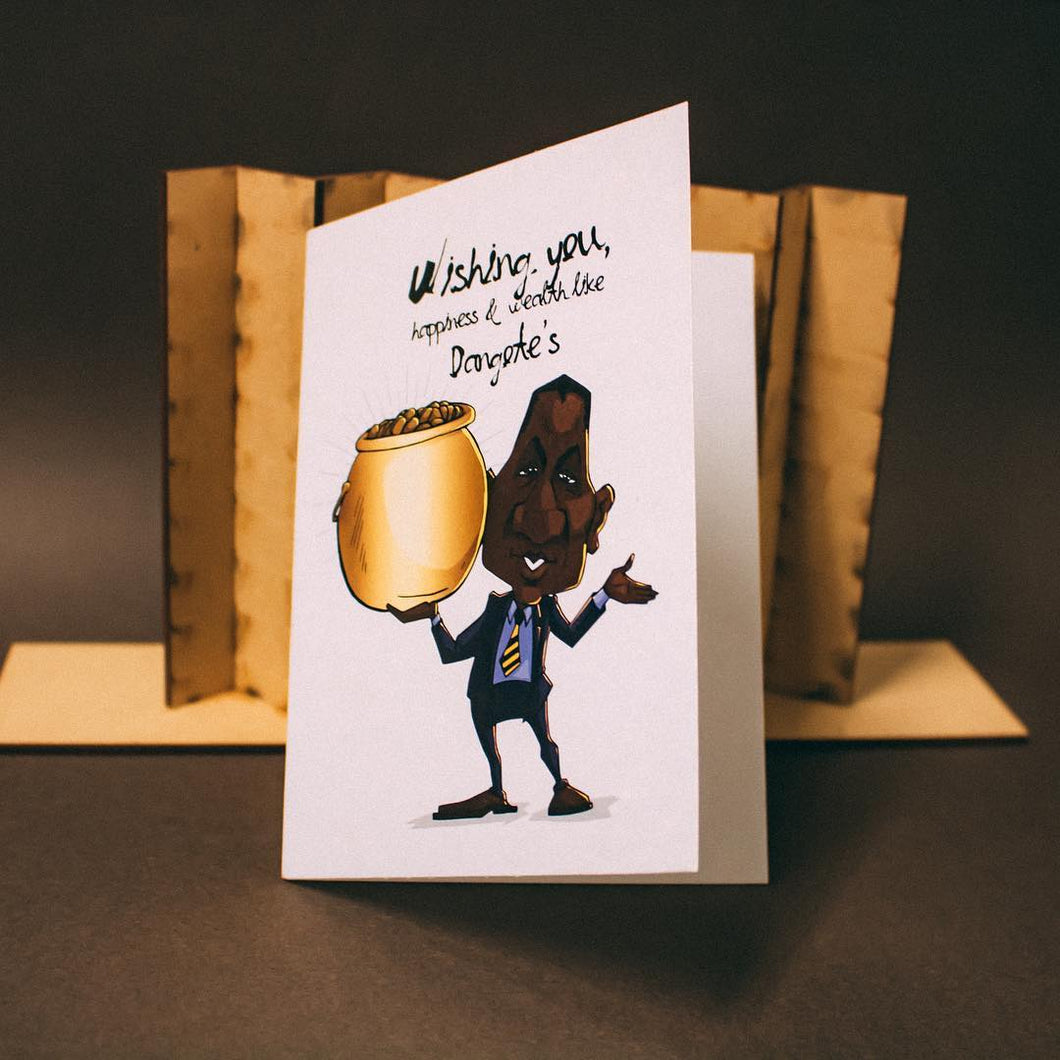 Wishing you,
happiness & wealth like
Dangote's